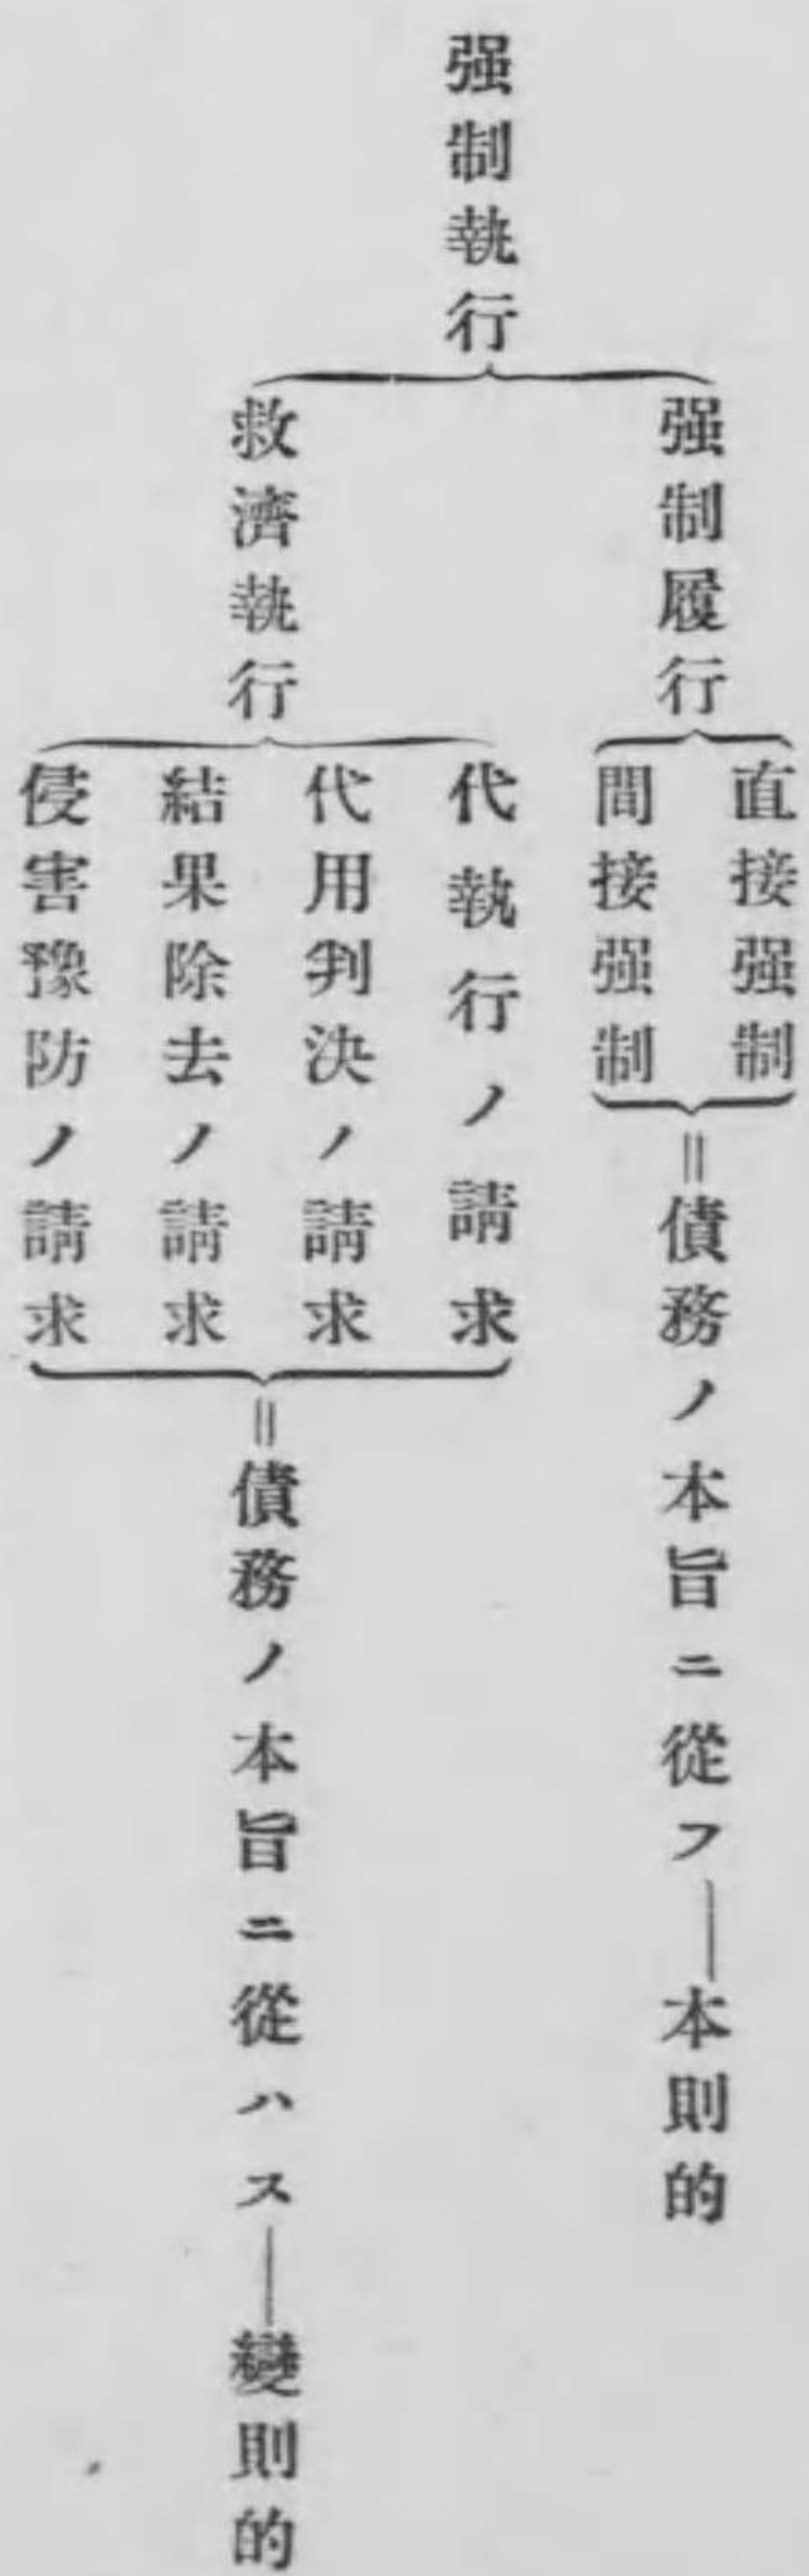 强制執行
强制履行
直接强制
間接强制
＝債務ノ本旨ニ從フ―本則的
救濟執行
代執行ノ請求
代用判決ノ請求
結果除去ノ請求
侵害豫防ノ請求
＝債務ノ本旨ニ從ハス―變則的